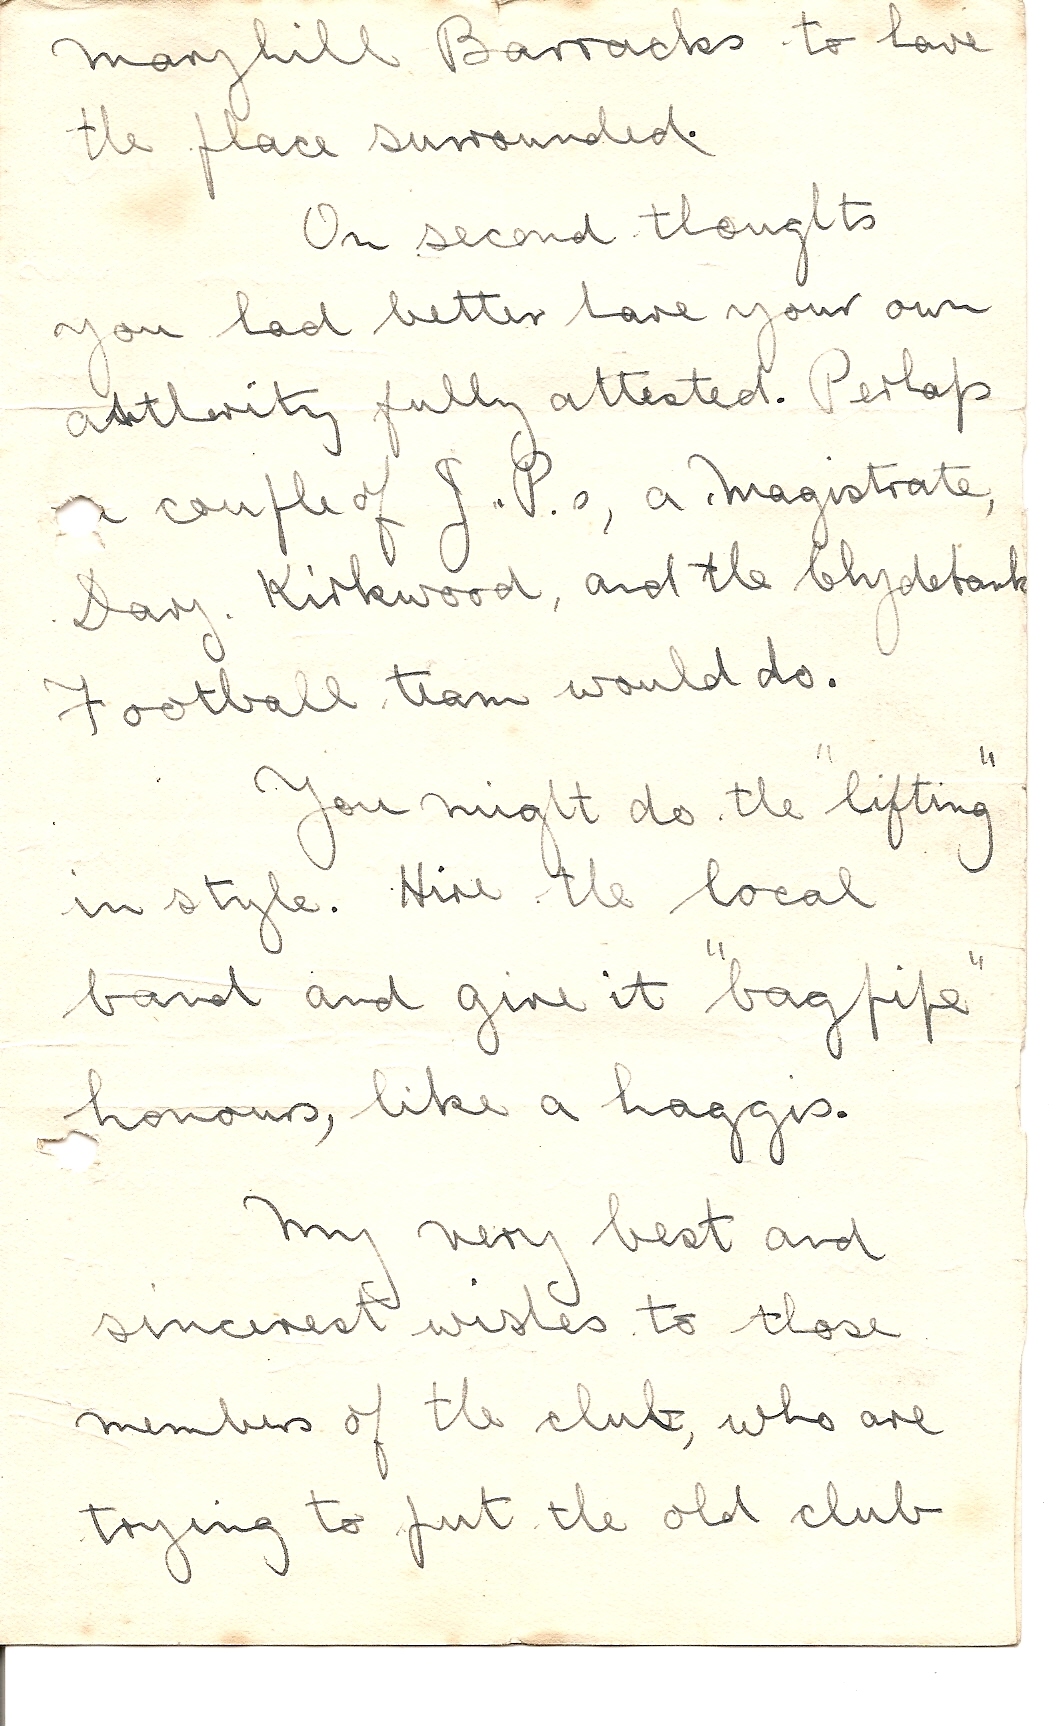 Maryhill Barracks to have
the place surrounded.
On second thoughts
you had better have your own
authority fully attested. Perhaps
a couple of J.P.s, a Magistrate,
Davy. Kirkwood, and the Clydebank
Football team would do.
You might do the "lifting"
in style. Hire the local
band and give it "bagpipe"
honours, like a haggis.
My very best and
sincerest wishes to those
members of the club, who are
trying to put the old club